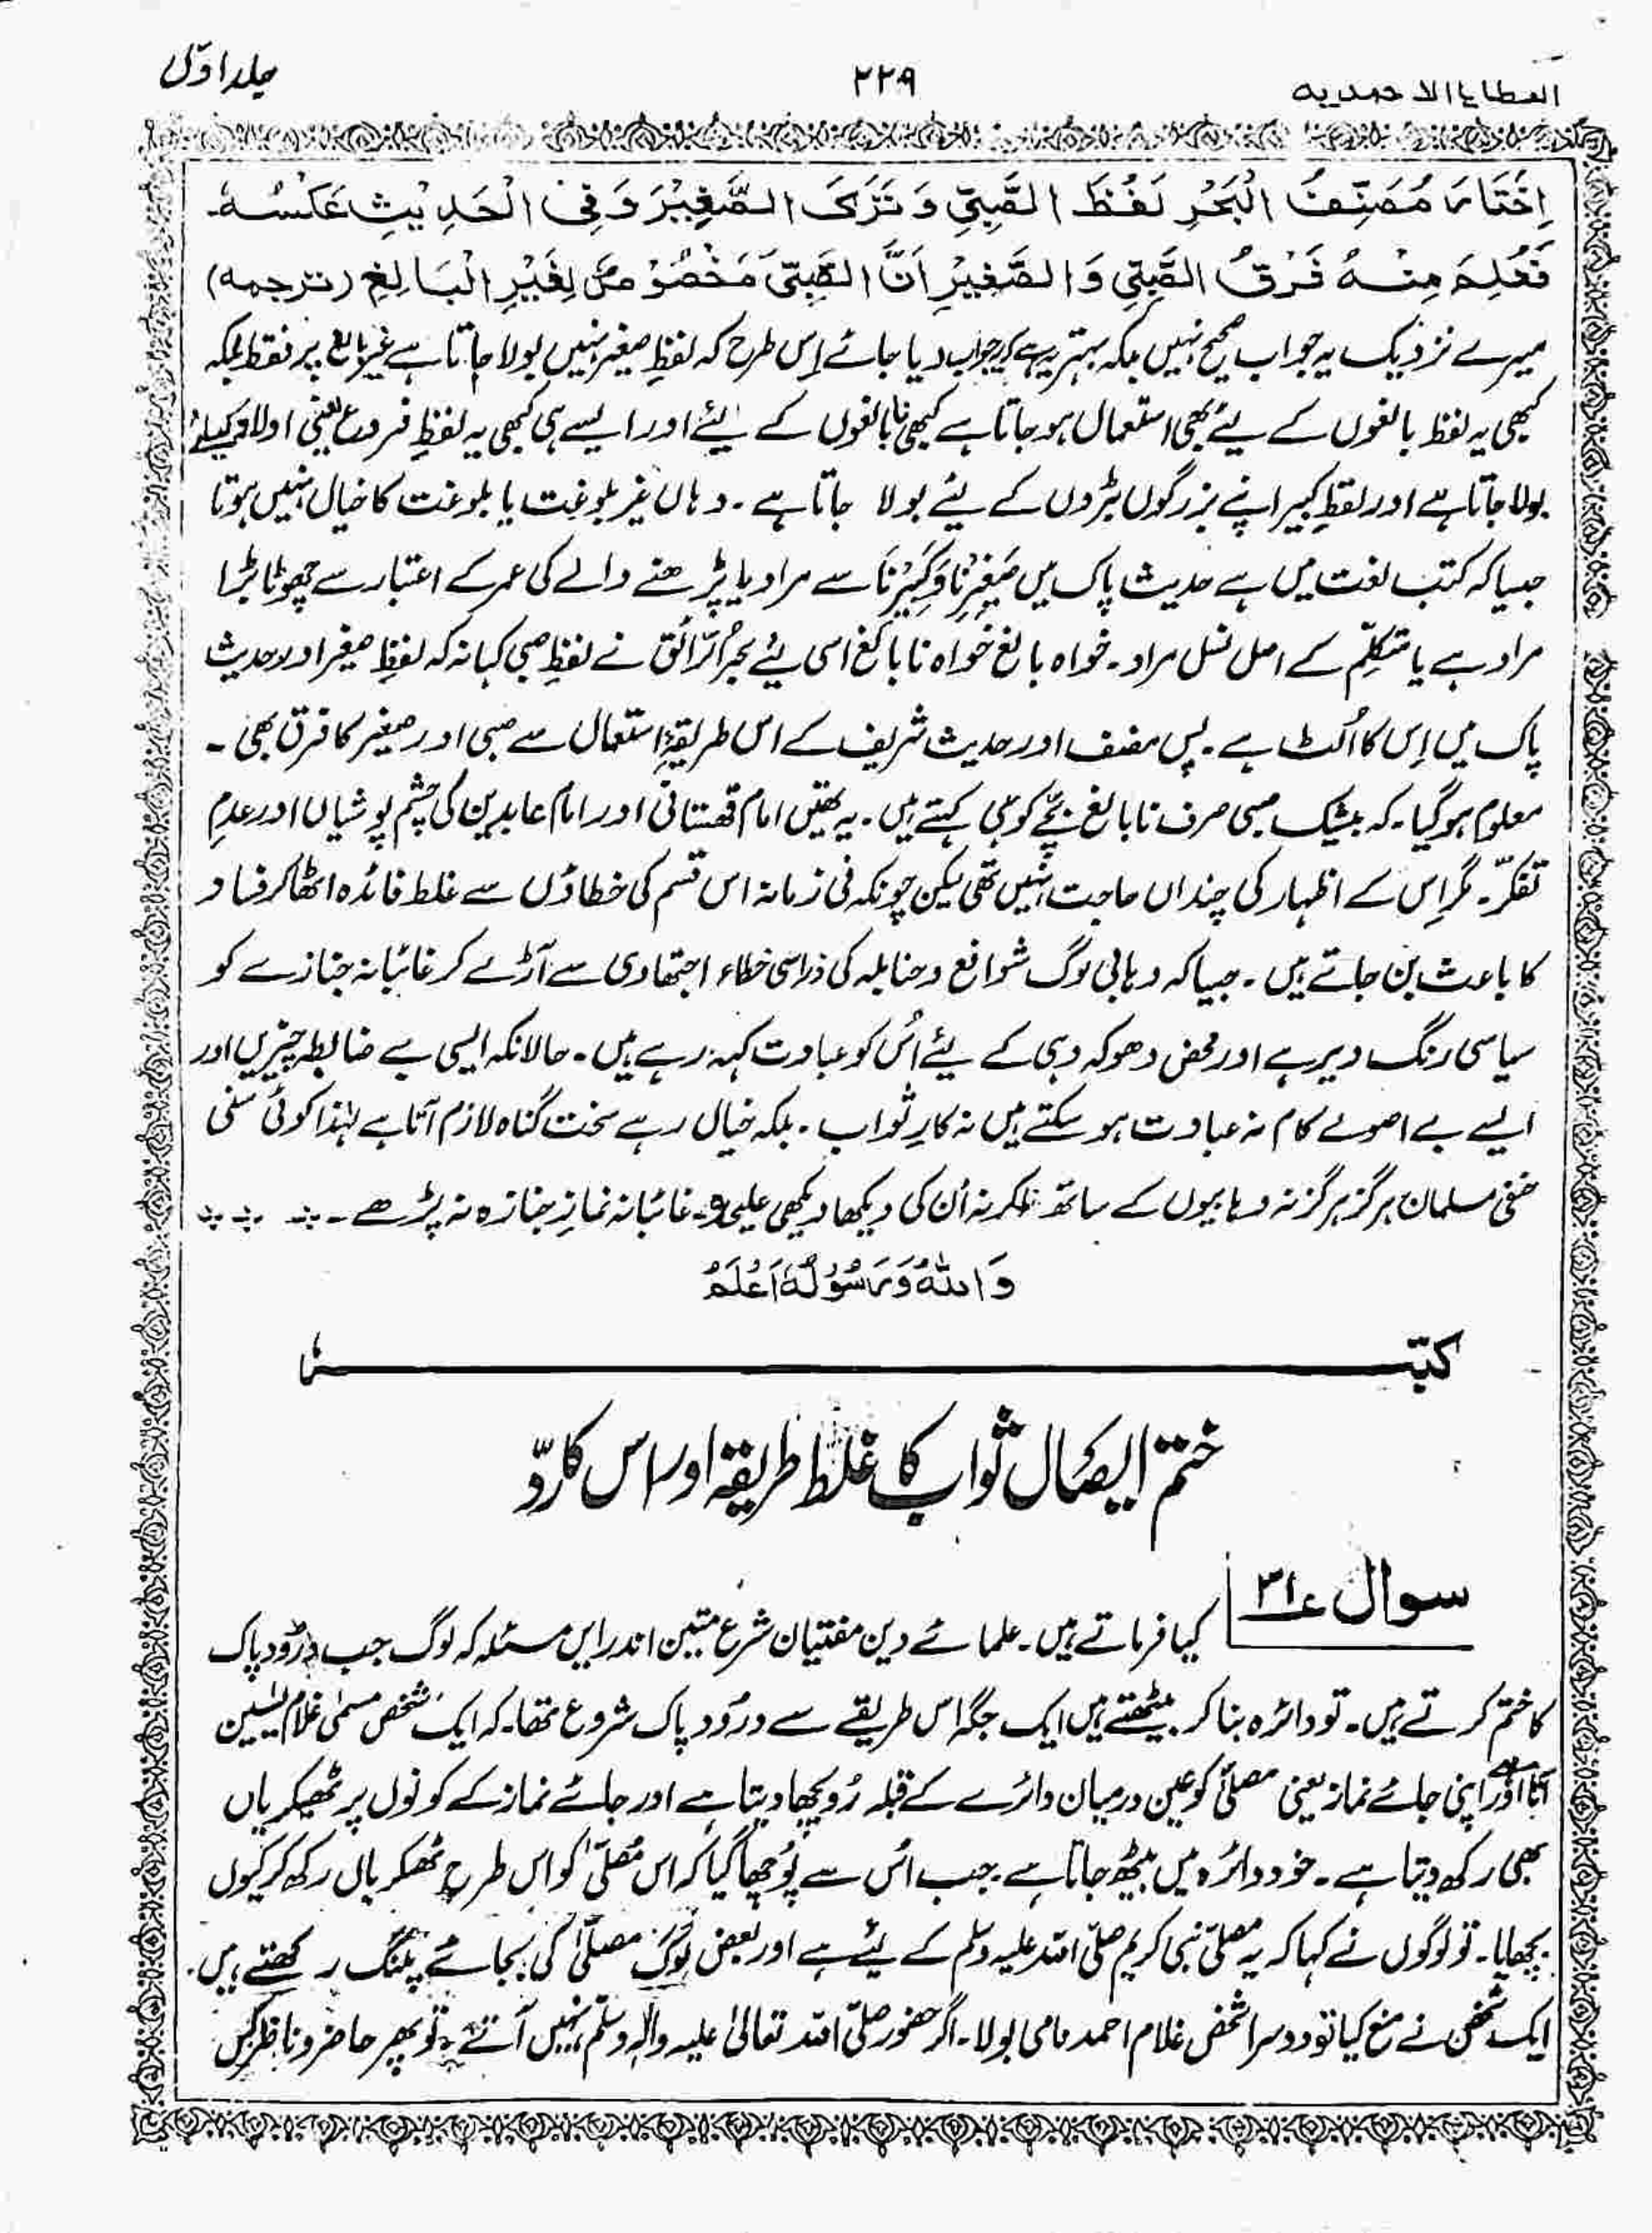 العطایا الاحمدیہ ۲۲۹ جلد اوّل
اِخْتَارَ مُصَنِّفُ الْبَحْرِ لَفْظَ الصَّبِیِّ وَ تَرَکَ الصَّغِیْرَ وَفِی الْحَدِیْثِ عَکْسُہٗ۔
فَعُلِمَ مِنْہُ فَرْقُ الصَّبِیِّ وَالصَّغِیْرِ اَنَّ الصَّبِیَّ مَخْصُوْصٌ لِغَیْرِ الْبَالِغِ (ترجمہ)
میرے نزدیک یہ جواب صحیح نہیں بلکہ بہتر یہ ہے کہ جواب دیا جائے اِس طرح کہ لفظِ صغیر نہیں بولا جاتا ہے غیر بالغ پر فقط بلکہ
کبھی یہ لفظ بالغوں کے لیئے بھی استعمال ہو جاتا ہے کبھی نابالغوں کے لیئے اور ایسے ہی کبھی یہ لفظِ فروع یعنی اولاد کیلئے
بولا جاتا ہے اور لفظِ کبیر اپنے بزرگوں بڑوں کے لیئے بولا جاتا ہے۔ وہاں غیر بلوغت یا بلوغت کا خیال نہیں ہوتا
جیسا کہ کتب لغت میں ہے حدیث پاک میں صَغِیْرِنَا وَکَبِیْرِنَا سے مراد یا پڑھنے والے کی عمر کے اعتبار سے چھوٹا بڑا
مراد ہے یا متکلِّم کے اصل نسل مراد۔ خواہ بالغ خواہ نابالغ اسی لیئے بحرُالرّائق نے لفظِ صبی کہا نہ کہ لفظِ صغیر اور حدیث
پاک میں اِس کا اُلٹ ہے۔ پس مصنف اور حدیث شریف کے اس طریقۂِ استعمال سے صبی اور صغیر کا فرق بھی۔
معلوم ہوگیا۔ کہ بیشک صبی صرف نابالغ بچّے کو ہی کہتے ہیں۔ یہ تھیں امام قہستانی اور امام عابدین کی چشم پوشیاں اور عدمِ
تفکّر۔ مگر اِس کے اظہار کی چنداں حاجت نہیں تھی لیکن چونکہ فی زمانہ اس قسم کی خطاؤں سے غلط فائدہ اٹھا کر فساد
کا باعث بن جاتے ہیں۔ جیسا کہ وہابی لوگ شوافع و حنابلہ کی ذراسی خطاء اجتہادی سے آڑ لے کر غائبانہ جنازے کو
سیاسی رنگ دیرہے اور محض دھوکہ دہی کے لیئے اُس کو عبادت کہہ رہے ہیں۔ حالانکہ ایسی بے ضابطہ چیزیں اور
ایسے بے اصولے کام نہ عبادت ہو سکتے ہیں نہ کارِ ثواب۔ بلکہ خیال رہے سخت گناہ لازم آتا ہے لہٰذا کوئی سنی
حنفی مسلمان ہرگز ہرگز نہ وہابیوں کے ساتھ ملکر نہ اُن کی دیکھا دیکھی علیحدہ۔ غائبانہ نمازِ جنازہ نہ پڑھے۔
وَاللہُ وَرَسُوْلُہٗ اَعْلَمُ
کتبہ
ختم ایصال ثواب کا غلط طریقہ اور اس کا ردّ
سوال ۳۱؎
کیا فرماتے ہیں۔ علمائے دین مفتیان شرع متین اندر ایں مسئلہ کہ لوگ جب درُود پاک
کا ختم کرتے ہیں۔ تو دائرہ بنا کر بیٹھتے ہیں ایک جگہ اس طریقے سے درُود پاک شروع تھا۔ کہ ایک شخص مسمٰی غلام یٰسین
آتا ہے اور اپنی جائے نماز یعنی مصلّٰی کو عین درمیان دائرے کے قبلہ رُو بچھا دیتا ہے اور جائے نماز کے کونوں پر ٹھیکریاں
بھی رکھ دیتا ہے۔ خود دائرہ میں بیٹھ جاتا ہے۔ جب اُس سے پُوچھا گیا کہ اس مُصلّٰی کو اس طرح ٹھیکریاں رکھ کر کیوں
بچھایا۔ تو لوگوں نے کہا کہ یہ مصلّٰی نبی کریم صلّی اللہ علیہ وسلم کے لیئے ہے اور بعض لوگ مصلّٰی کی بجائے پلنگ رکھتے ہیں۔
ایک شخص نے منع کیا تو دوسرا شخص غلام احمد نامی بولا۔ اگر حضور صلّی اللہ تعالیٰ علیہ واٰلہٖ وسلّم نہیں آتے۔ تو پھر حاضر و ناظر کیں